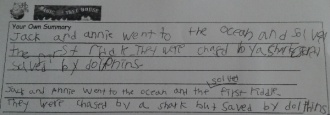 Your Own Summary
Jack and annie went to the ocean and solve
the first riddle. They were chased by a shark
saved by dolphins.
solved
Jack and Annie went to the ocean and the first riddle.
They were chased by a shark but saved by dolphins